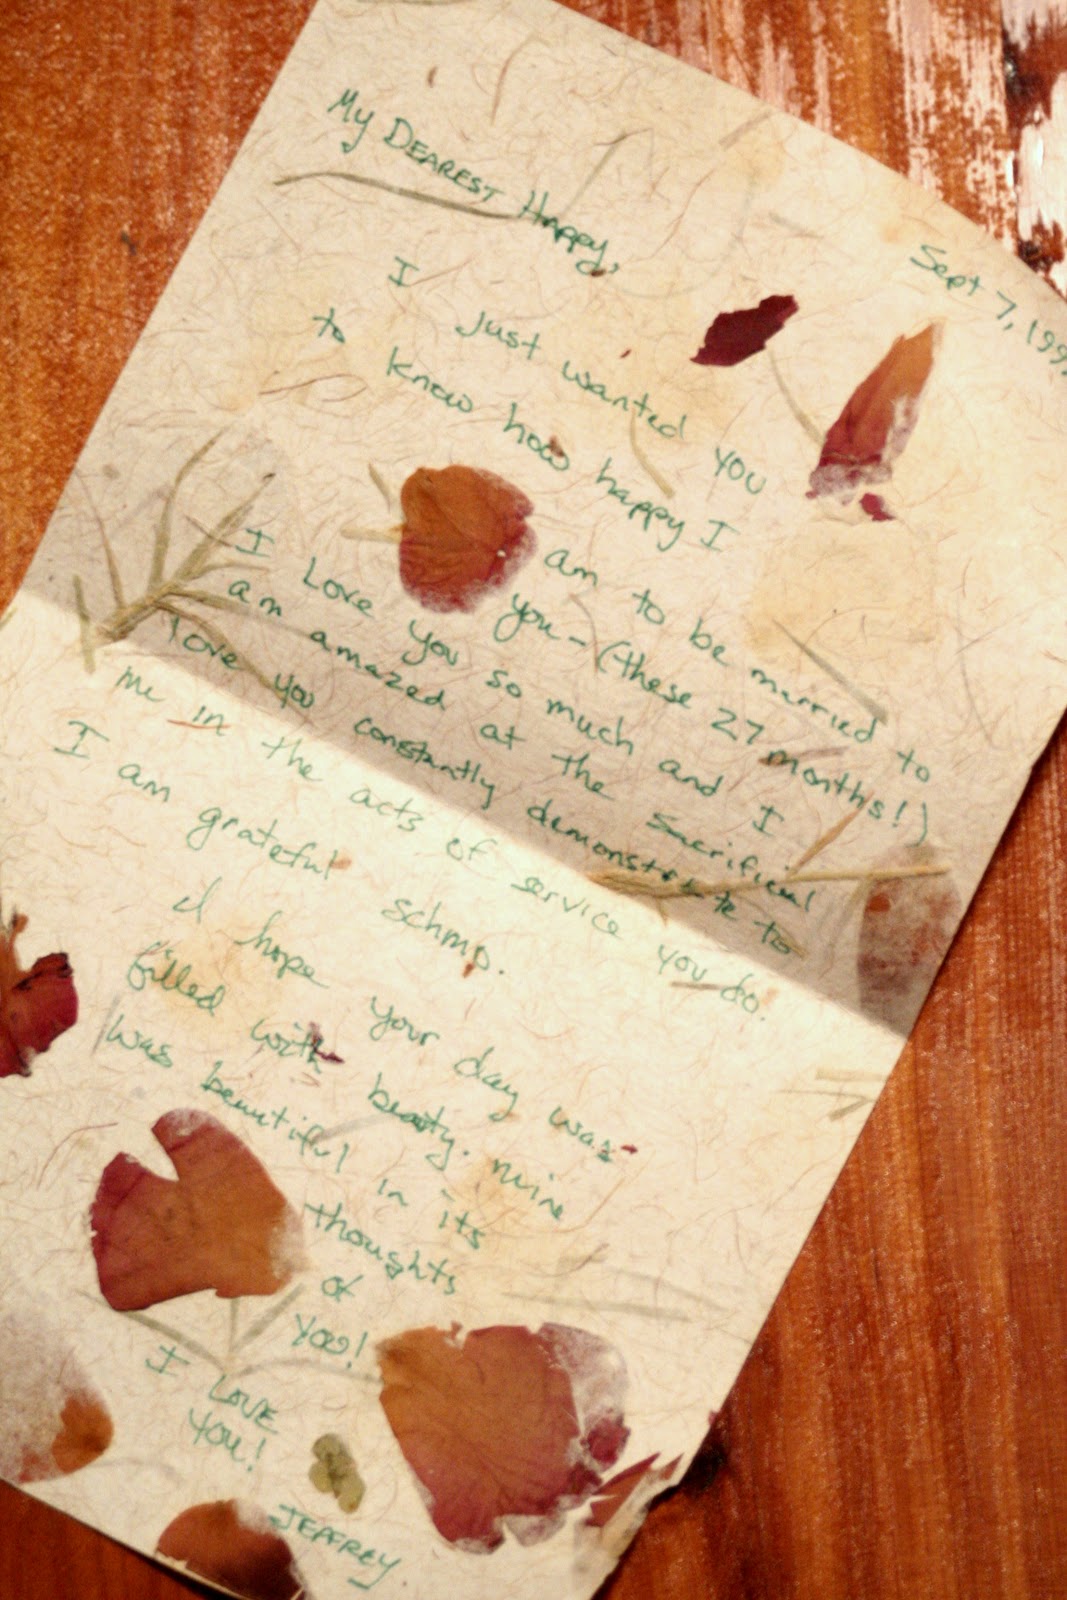 Sept 7, 199
My DEAREST Happy,
I just wanted you
to know how happy I
am to be married to
you - (these 27 months!)
I Love you so much and I
am amazed at the sacrificial
love you constantly demonstrate to
me in the acts of service you do.
I am grateful schmo.
I hope your day was
filled with beauty. mine
was beautiful in its
thoughts
of
you!
I LOVE
YOU!
JEFFREY